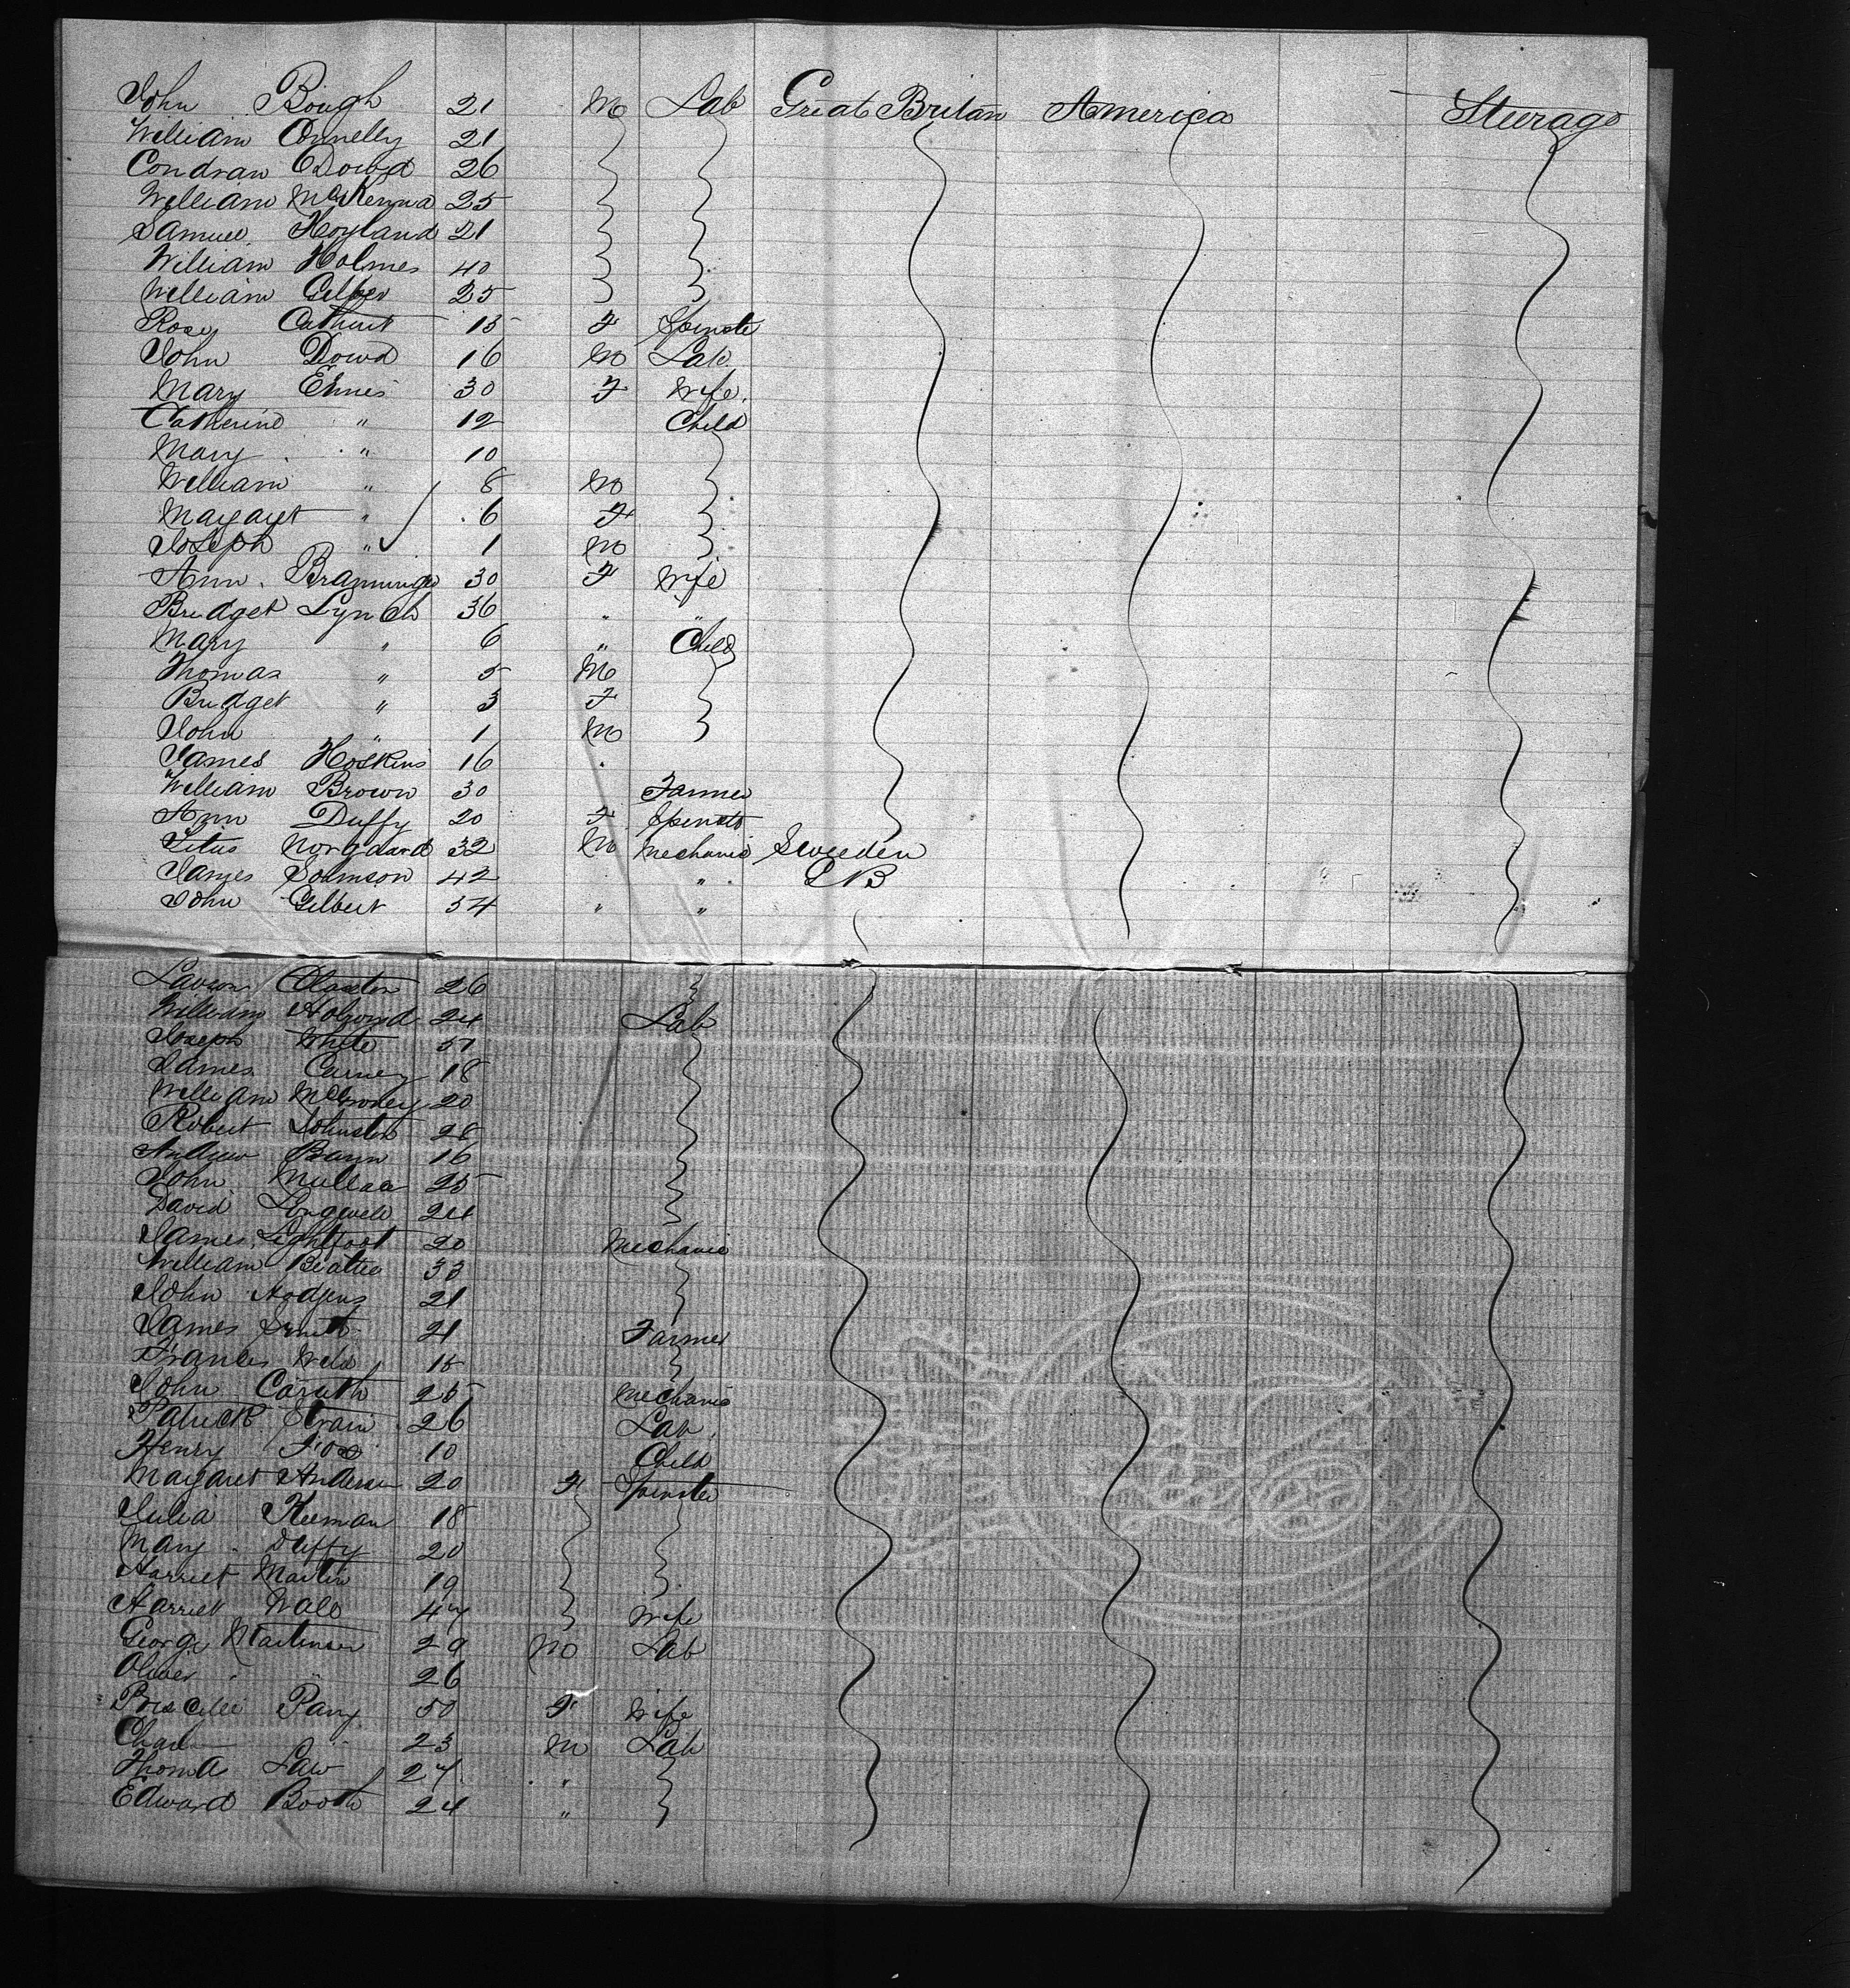 John Bough 21 M Lab Great Britan America Sturage
William Connelly 21
Condran Dowd 26
William McKenna 25
Samuel Hoyland 21
William Holmes 40
William 25
Rosey 15 F Spinste
John Dowd 16 M Lab
Mary Ennis 30 F Wife
Catherine " 12 Child
Mary " 10
William " 8 M
Margaret " 6 F
Joseph " 1 M
Ann 30 F Wife
Bridget Lynch 36 " "
Mary " 6 " Child
Thomas " 5 M
Bridget " 3 F
John " 1 M
James Hoskins 16
William Brown 30 Farmer
Ann Duffy 20 F
Norgaard 32 M Mechanic Sweden
James Johnson 42 "
John Gilbert 34 " "
Claxton 26
William 24 Lab
Joseph White
James Carney 18
William 20
Robert Johnston 28
Andrew 16
John 25
David Longwell 24
James Lightfoot 20 Mechanic
William Beattie 33
John Hodgens 21
James Smith 21 Farmer
Frances
John Caruth 25 Mechanic
Patrick 26 Lab
Henry 10 Child
Margaret Anderson 20 F Spinster
Julia 18
Mary Duffy 20
Harriet Martin 19
Harriet Wife
George Martinson 29 M Lab
Oliver " 26
Parry 50 F Wife
23 M Lab
Law "
Edward Booth 24 "